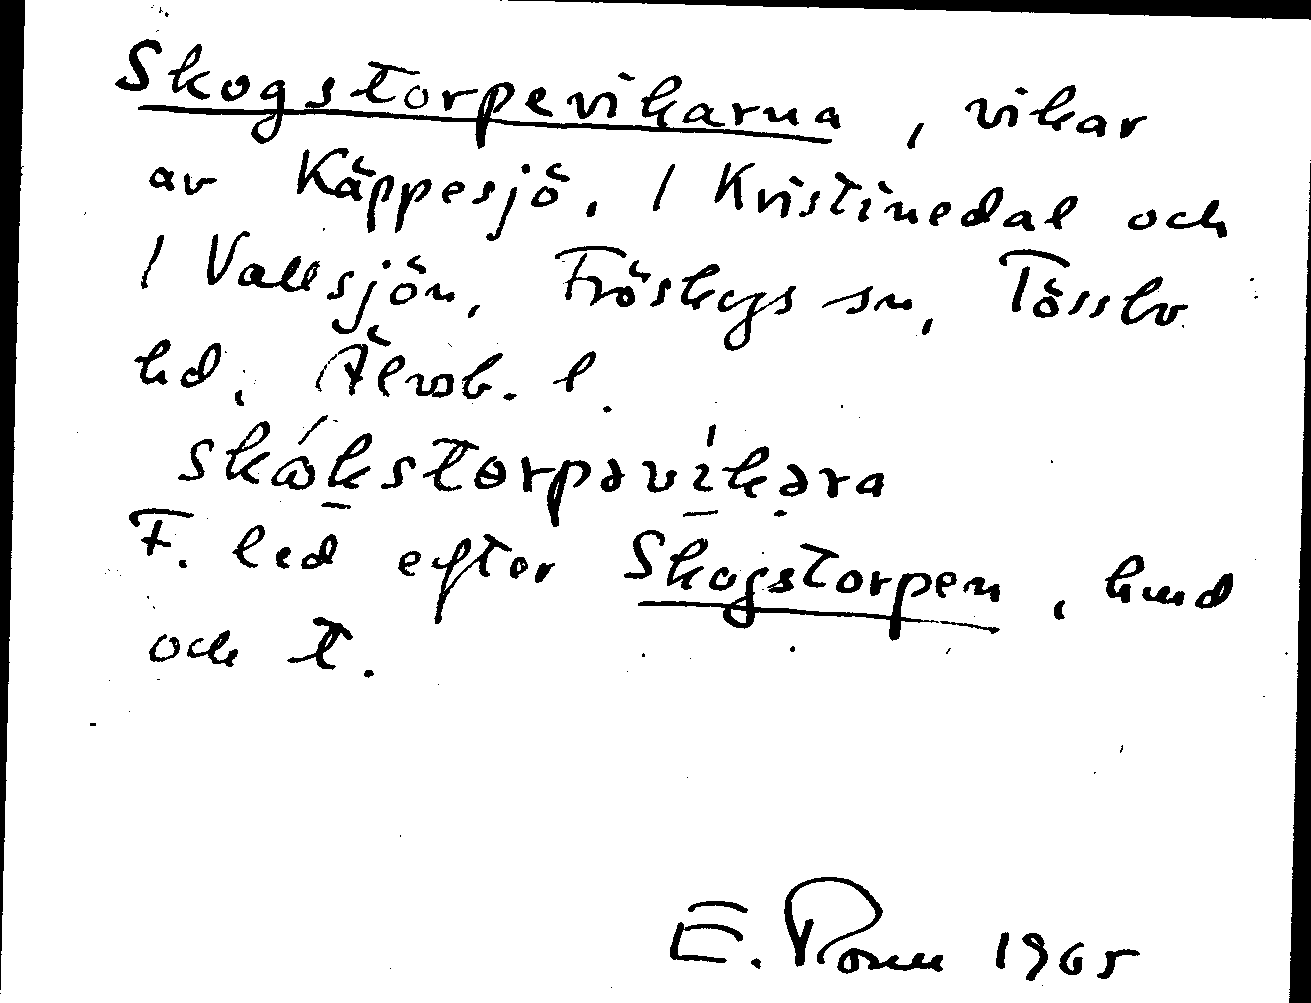 Skogstorpevikarna, vikar
av Käppesjö, 1 Kristinedal och
1 Vallsjön, Fröskogs sn, Tössbo
hd, Älvsb. l.
skɷ́kstorpəvíkəra
F. led efter Skogstorpen, hmd
och t.
E. Ronn 1965